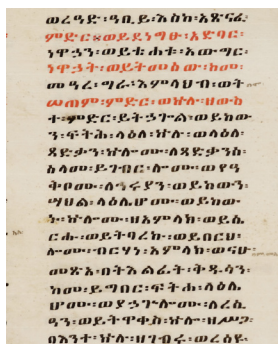 ወረዓድ፡ዓቢይ፡እስከ፡አጽናፈ፡
ምድር፡ወይደነግፁ፡አድባር፡
ነዋኃን፡ወይቴሐቱ፡አውግር፡
ነዋኃት፡ወይትመሰው፡ከመ፡
መዓረ፡ግራ፡እምላህብ፡ወት
ሠጠም፡ምድር፡ወኵሉ፡ዘውስ
ተ፡ምድር፡ይትኃጐል፡ወይከው
ን፡ፍትሕ፡ላዕለ፡ኵሉ፡ወላዕለ፡
ጻድቃን፡ኵሎሙ፡ለጻድቃንሰ፡
ሰላመ፡ይገብር፡ሎሙ፡ወየዓ
ቅቦሙ፡ለኅሩያን፡ወይከውን፡
ሣህል፡ላዕሌሆሙ፡ወይከው
ኑ፡ኵሎሙ፡ዘአምላክ፡ወይሴ
ርሑ፡ወይትባረኩ፡ወይበርህ፡
ሎሙ፡ብርሃነ፡አምላክ፡ወናሁ፡
መጽአ፡በትእልፊት፡ቅዱሳን፡
ከመ፡ይግበር፡ፍትሐ፡ላዕሌ
ሆሙ፡ወያኃጕሎሙ፡ለረሲ
ዓን፡ወይትዋቀስ፡ኵሎ፡ዘሥጋ፡
በእንተ፡ኵሉ፡ዘገብሩ፡ወረሰዩ፡